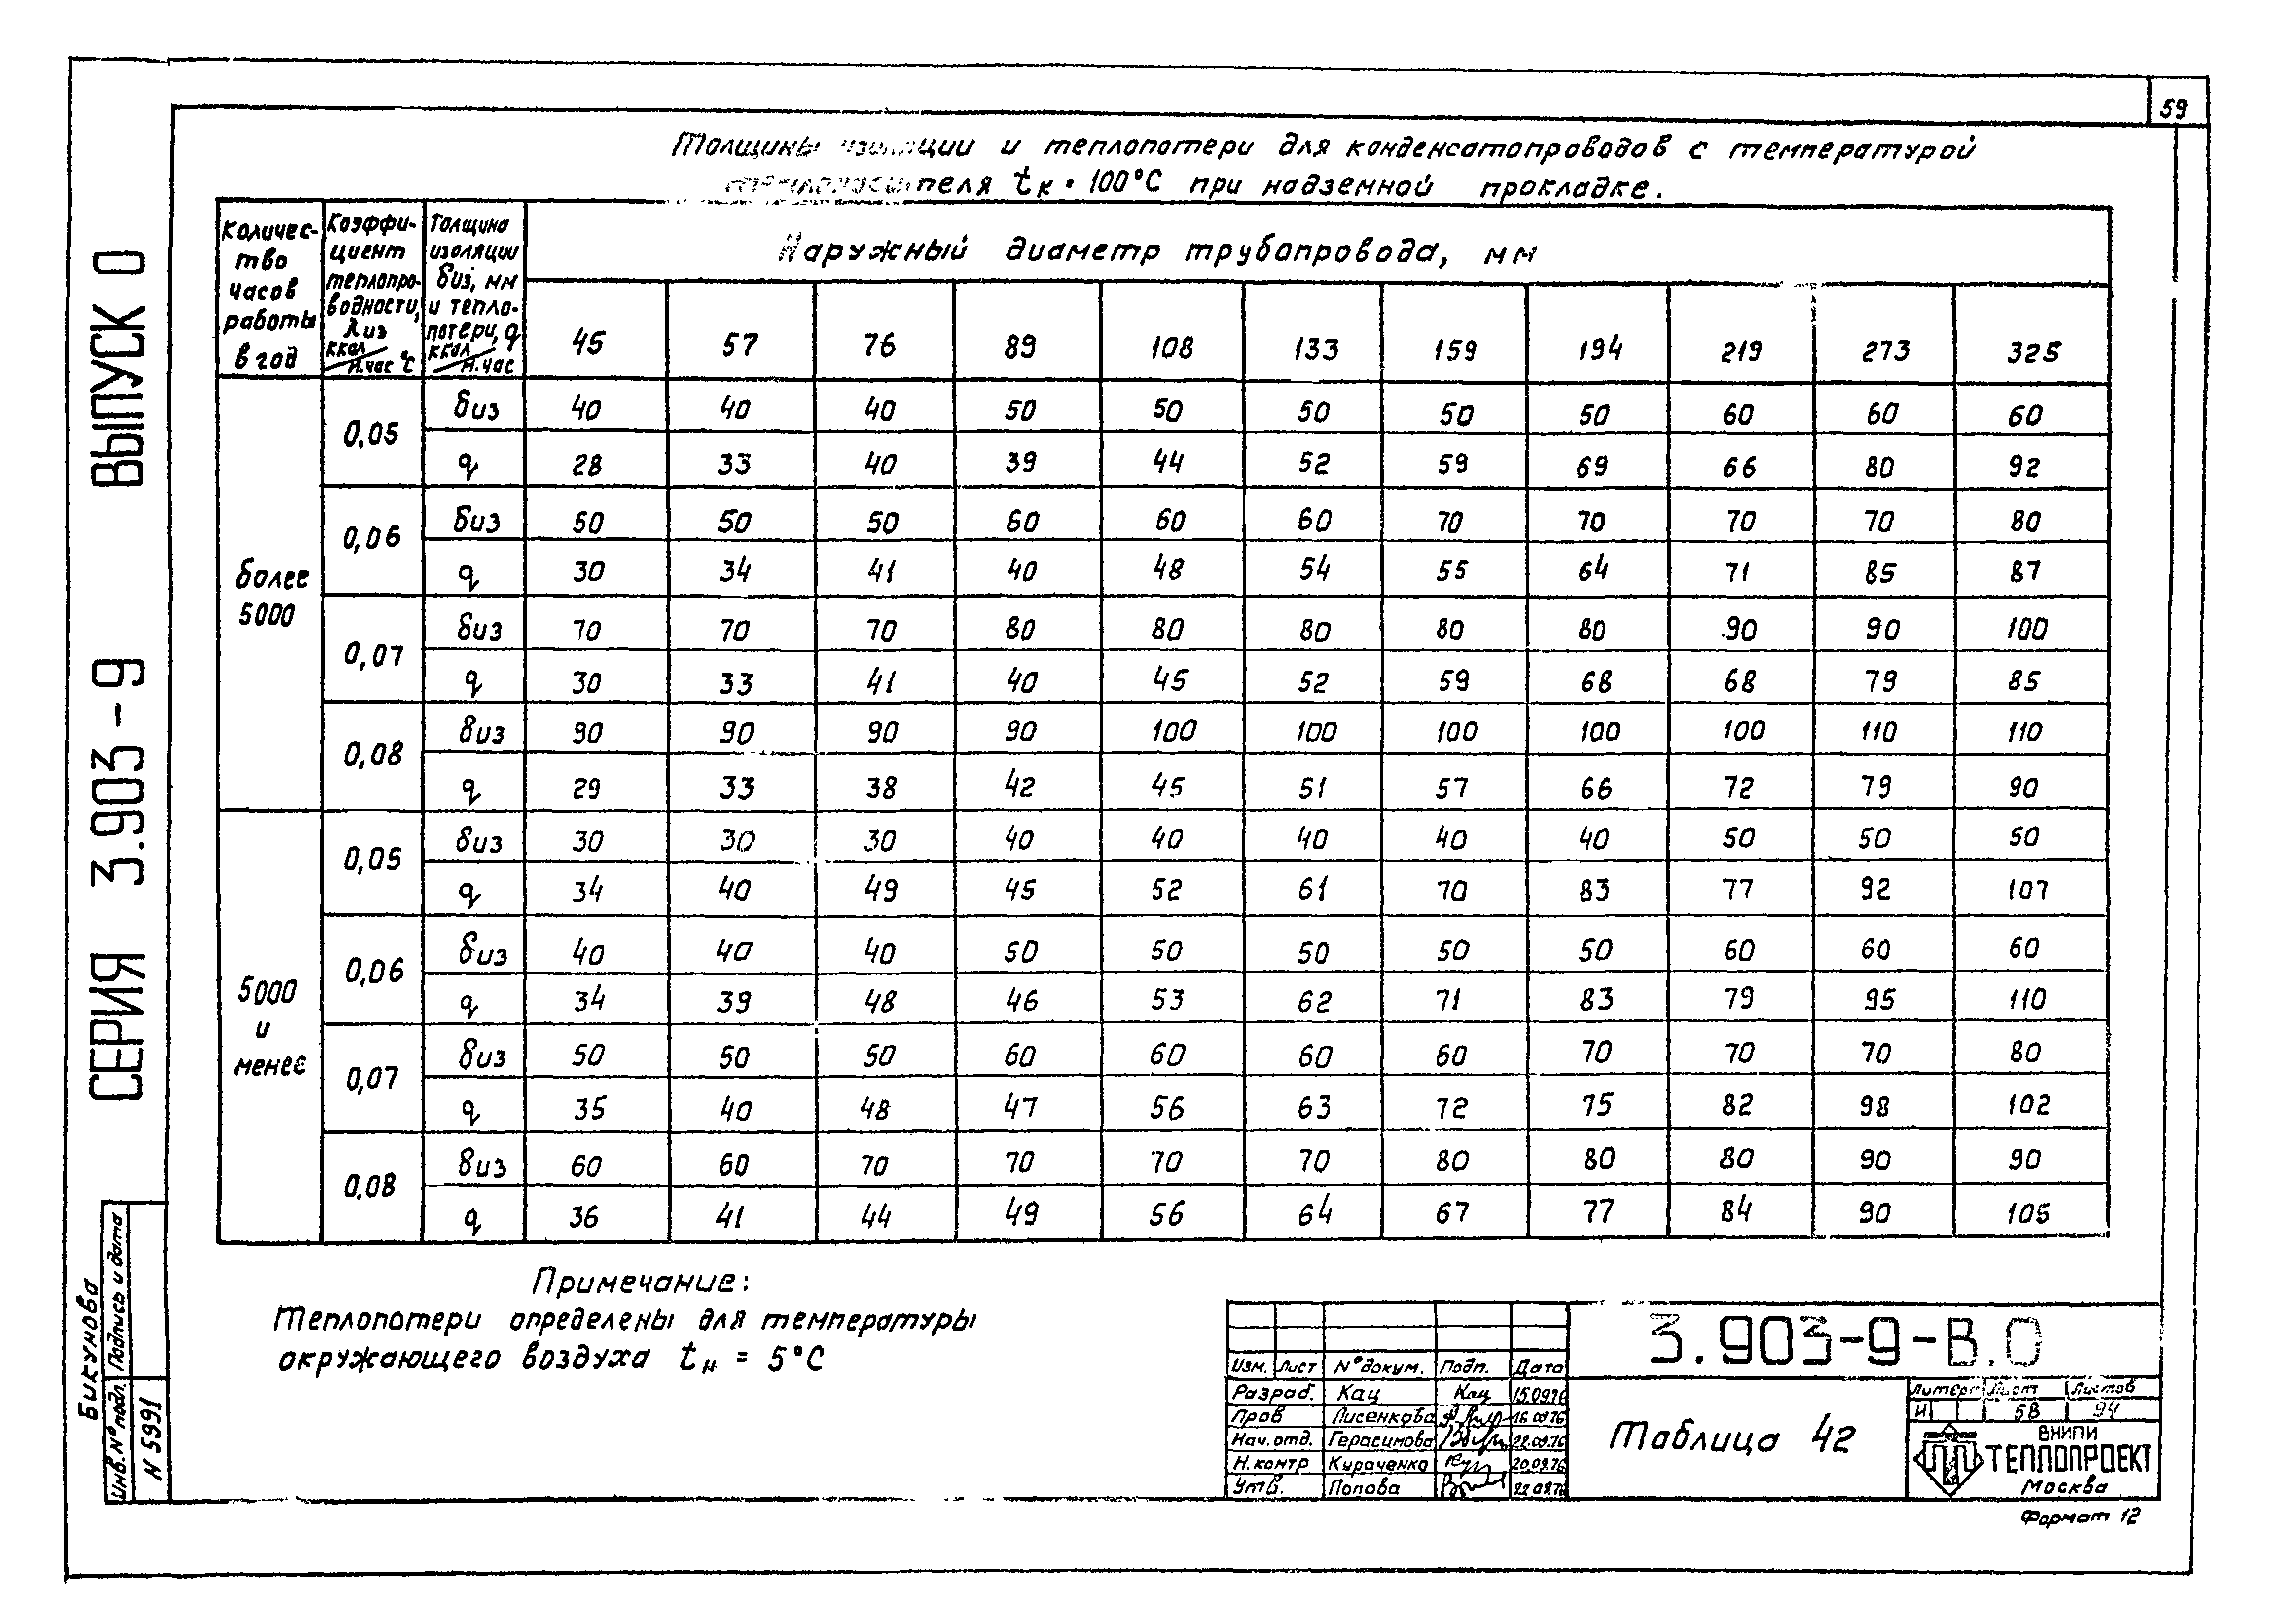 59
Толщины изоляции и теплопотери для конденсатопроводов с температурой
теплоносителя tк = 100°С при надземной прокладке.
Количес-
тво
часов
работы
в год
Коэффи-
циент
теплопро-
водности,
λиз
ккал
м.час °С
Толщина
изоляции
δиз, мм
и тепло-
потери, q
ккал
м.час
Наружный диаметр трубопровода, мм
45 57 76 89 108 133 159 194 219 273 325
более
5000
0,05
δиз 40 40 40 50 50 50 50 50 60 60 60
q 28 33 40 39 44 52 59 69 66 80 92
0,06
δиз 50 50 50 60 60 60 70 70 70 70 80
q 30 34 41 40 48 54 55 64 71 85 87
0,07
δиз 70 70 70 80 80 80 80 80 90 90 100
q 30 33 41 40 45 52 59 68 68 79 85
0,08
δиз 90 90 90 90 100 100 100 100 100 110 110
q 29 33 38 42 45 51 57 66 72 79 90
5000
и
менее
0,05
δиз 30 30 30 40 40 40 40 40 50 50 50
q 34 40 49 45 52 61 70 83 77 92 107
0,06
δиз 40 40 40 50 50 50 50 50 60 60 60
q 34 39 48 46 53 62 71 83 79 95 110
0,07
δиз 50 50 50 60 60 60 60 70 70 70 80
q 35 40 48 47 56 63 72 75 82 98 102
0,08
δиз 60 60 70 70 70 70 80 80 80 90 90
q 36 41 44 49 56 64 67 77 84 90 105
Примечание:
Теплопотери определены для температуры
окружающего воздуха tн = 5°С
СЕРИЯ 3.903-9 ВЫПУСК 0
Бикунова
Инв.№ подл. Подпись и дата
N 5991
Изм. Лист №докум. Подп. Дата
Разраб. Кац Кац 15.09.76
Пров Лисенкова 16 09 76
Нач. отд. Герасимова 22.09.76
Н.контр Кураченко 20.09.76
Утв. Попова 22.09.76
3.903-9-В.0
Таблица 42
Литера Лист Листов
И 58 94
ВНИПИ
ТЕПЛОПРОЕКТ
Москва
Формат 12